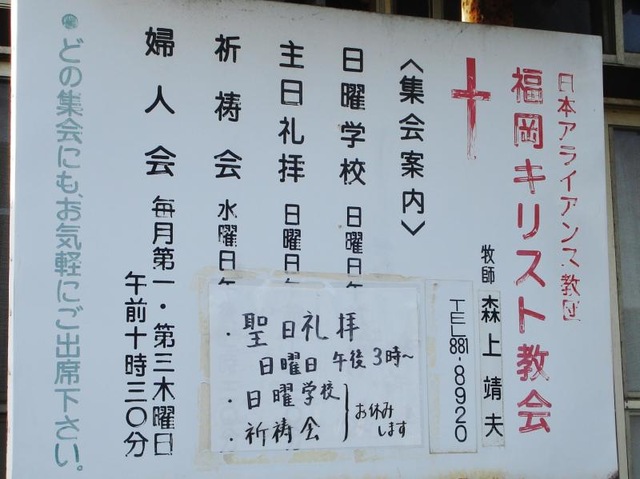 日本アライアンス教団
福岡キリスト教会
牧師 森上靖夫
TEL 881-8920
〈集会案内〉
日曜学校 日曜日午
主日礼拝 日曜日午
祈祷会 水曜日午
婦人会 毎月第一・第三木曜日
午前十時三〇分
どの集会にも、お気軽にご出席下さい。
・聖日礼拝
日曜日 午後3時〜
・日曜学校
・祈祷会
お休み
します